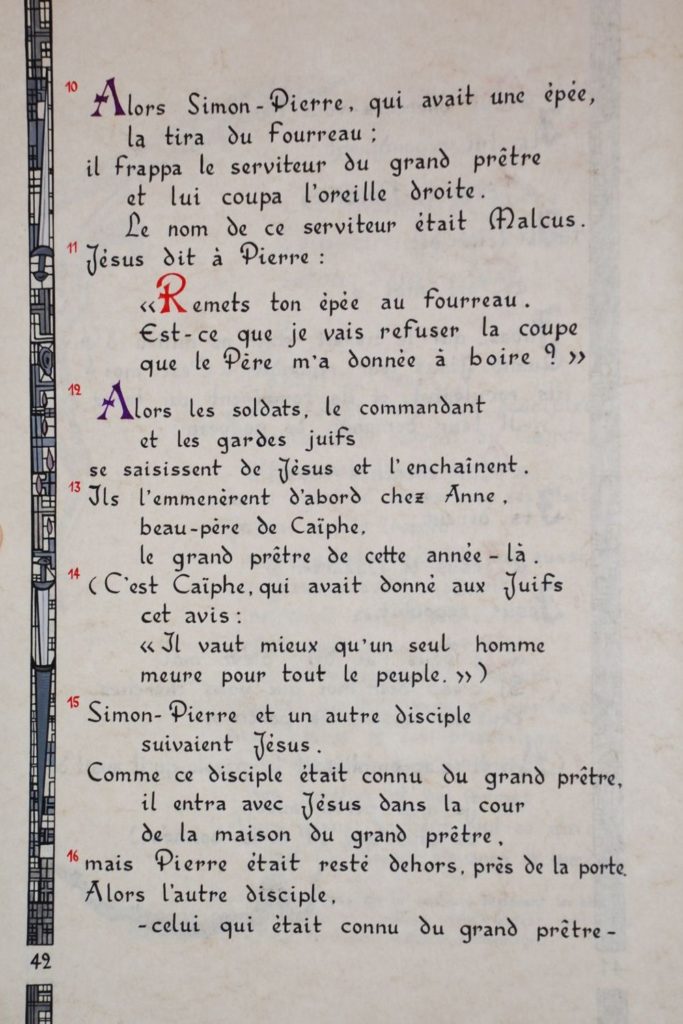 10 Alors Simon-Pierre, qui avait une épée,
la tira du fourreau ;
il frappa le serviteur du grand prêtre
et lui coupa l'oreille droite.
Le nom de ce serviteur était Malcus.
11 Jésus dit à Pierre :
«Remets ton épée au fourreau.
Est-ce que je vais refuser la coupe
que le Père m'a donnée à boire ? »
12 Alors les soldats, le commandant
et les gardes juifs
se saisissent de Jésus et l'enchaînent.
13 Ils l'emmenèrent d'abord chez Anne,
beau-père de Caïphe,
le grand prêtre de cette année-là.
14 (C'est Caïphe, qui avait donné aux Juifs
cet avis :
« Il vaut mieux qu'un seul homme
meure pour tout le peuple. »)
15 Simon-Pierre et un autre disciple
suivaient Jésus.
Comme ce disciple était connu du grand prêtre,
il entra avec Jésus dans la cour
de la maison du grand prêtre,
16 mais Pierre était resté dehors, près de la porte.
Alors l'autre disciple,
-celui qui était connu du grand prêtre-
42